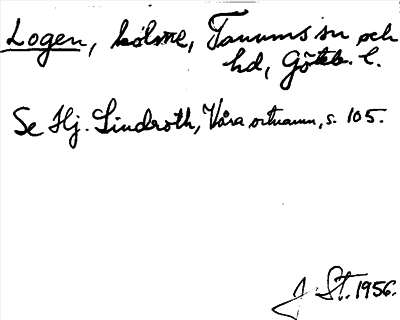 Logen, holme, Tanums sn och
hd, Göteb. l.
Se Hj. Lindroth, Våra ortnamn, s. 105.
J. St. 1956.